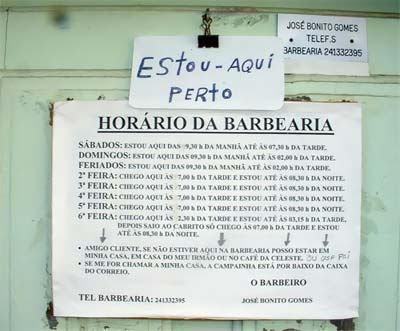 JOSÉ BONITO GOMES
TELEF.S
BARBEARIA 241332395
ESTOU-AQUI
PERTO
HORÁRIO DA BARBEARIA
SÁBADOS: ESTOU AQUI DAS 09,30 h DA MANHÃ ATÉ ÀS 07,30 h DA TARDE.
DOMINGOS: ESTOU AQUI DAS 09,30 h DA MANHÃ ATÉ ÀS 02,00 h DA TARDE.
FERIADOS: ESTOU AQUI DAS 09,30 h DA MANHÃ ATÉ ÀS 02,00 h DA TARDE.
2ª FEIRA: CHEGO AQUI ÀS 7,00 h DA TARDE E ESTOU ATÉ ÀS 08,30 h DA NOITE.
3ª FEIRA: CHEGO AQUI ÀS 7,00 h DA TARDE E ESTOU ATÉ ÀS 08,30 h DA NOITE.
4ª FEIRA: CHEGO AQUI ÀS 7,00 h DA TARDE E ESTOU ATÉ ÀS 08,30 h DA NOITE.
5ª FEIRA: CHEGO AQUI ÀS 7,00 h DA TARDE E ESTOU ATÉ ÀS 08,30 h DA NOITE.
6ª FEIRA: CHEGO AQUI ÀS 2,30 h DA TARDE E ESTOU ATÉ ÀS 03,15 h DA TARDE,
DEPOIS SAIO AO CABRITO SÓ CHEGO ÀS 07,00 h DA TARDE E ESTOU ATÉ
ÀS 08,30 h DA NOITE.
• AMIGO CLIENTE, SE NÃO ESTIVER AQUI NA BARBEARIA POSSO ESTAR EM
MINHA CASA, EM CASA DO MEU IRMÃO OU NO CAFÉ DA CELESTE. OU
• SE ME FOR CHAMAR A MINHA CASA, A CAMPAINHA ESTÁ POR BAIXO DA CAIXA
DO CORREIO.
O BARBEIRO
TEL BARBEARIA: 241332395 JOSÉ BONITO GOMES